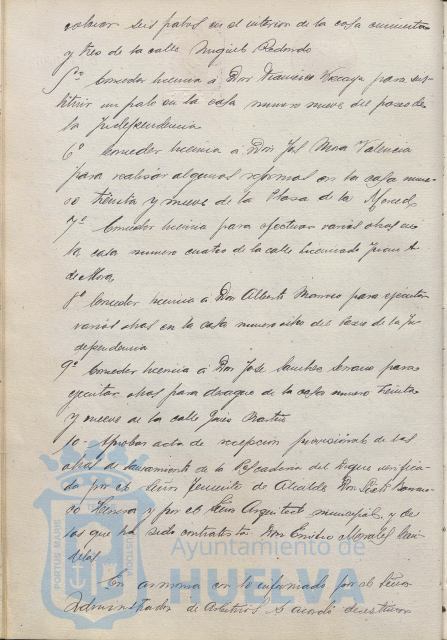 colocar seis palos en el interior de la casa cincuenta
y tres de la calle Miguel Redondo
5º Conceder licencia á Don Francisco Vizcaya para sus-
tituir un palo en la casa numero nueve del paseo de
la Independencia
6º Conceder licencia á Don José Mora Valencia
para realizar algunas reformas en la casa nume-
ro treinta y nueve de la Plaza de la Merced
7º Conceder licencia para efectuar varias obras en
la casa numero cuatro de la calle Licenciado Juan A.
de Mora
8º Conceder licencia á Don Alberto Marmo para ejecutar
varias obras en la casa numero ocho del Paseo de la In-
dependencia
9º Conceder licencia á Don José Sanchez Serrano para
ejecutar obras para desague de la casa numero treinta
y nueve de la calle Ginés Martin
10 Aprobar acta de recepcion provisional de las
obras de saneamiento de la Pescaderia del Dique verifica-
da por el Señor Teniente de Alcalde Don
y por el Señor Arquitecto municipal, y de
las que ha sido contratista Don Emilio Morales

En armonia con lo informado por el Señor
Administrador de Arbitrios se acordó desestimar
PORTUS MARIS
Ayuntamiento de
HUELVA